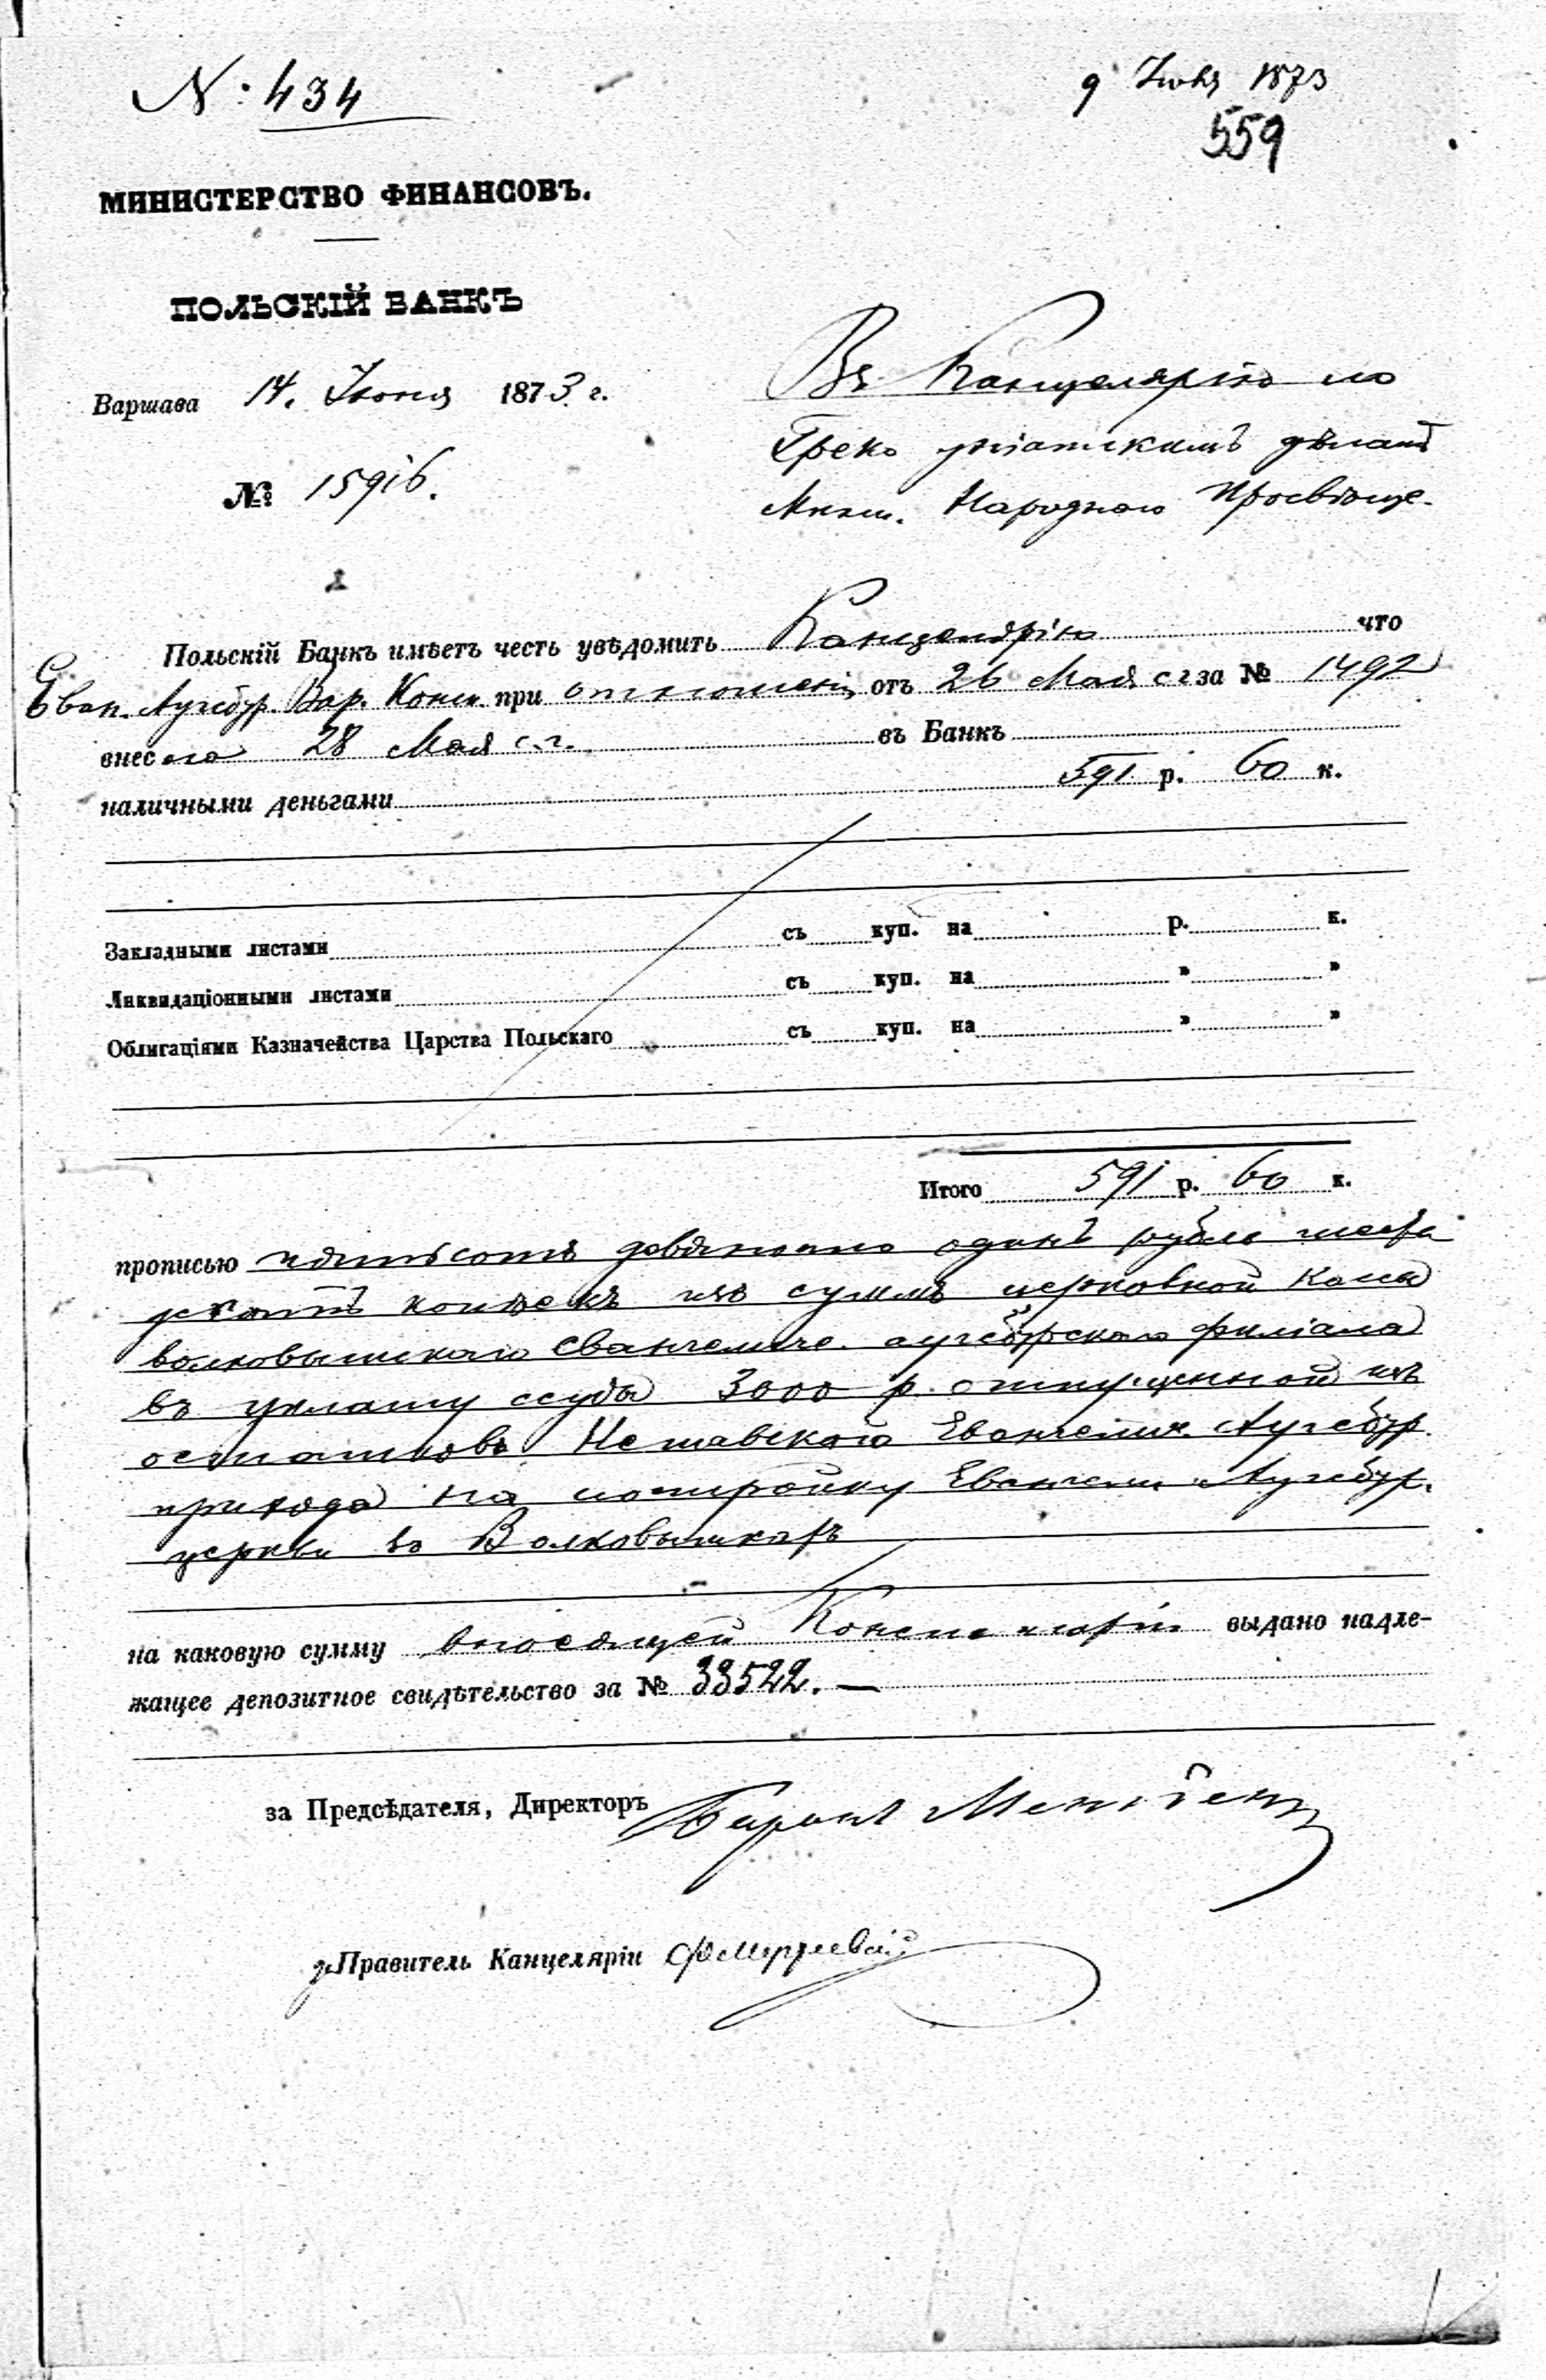 № 434
9 Іюля 1873
559
МИНИСТЕРСТВО ФИНАНСОВЪ.
ПОЛЬСКІЙ БАНКЪ
Варшава 14 Іюня 1873 г.
№ 15916.
Въ Канцелярію по
Греко уніатскимъ дѣламъ
Мин. Народнаго Просвѣще.
Польскій Банкъ имѣетъ честь увѣдомить Канцелярію что
Еван. Аугсбур. Вар. Конс. при отношеніи отъ 26 Мая с г за № 1492
внесла 28 Мая с. г. въ Банкъ
наличными деньгами 591 р. 60 к.
Закладными листами съ куп. на р. к.
Ликвидаціонными листами съ куп. на " "
Облигаціями Казначейства Царства Польскаго съ куп. на " "
Итого 591 р. 60 к.
прописью пятьсотъ девяносто одинъ рубль шесть
десятъ копѣекъ изъ суммъ церковной кассы
волковышскаго евангеличе. аугсбургскаго филіала
въ уплату ссуды 3000 р. отпущенной изъ
остатковъ Нешавскаго Евангелич. Аугсбур.
прихода на постройку Евангели Аугсбур.
церкви въ Волковышкахъ
на каковую сумму вносящей Консисторіи выдано надле-
жащее депозитное свидѣтельство за № 33522. —
за Предсѣдателя, Директоръ Баронъ Менгденъ
Правитель Канцеляріи